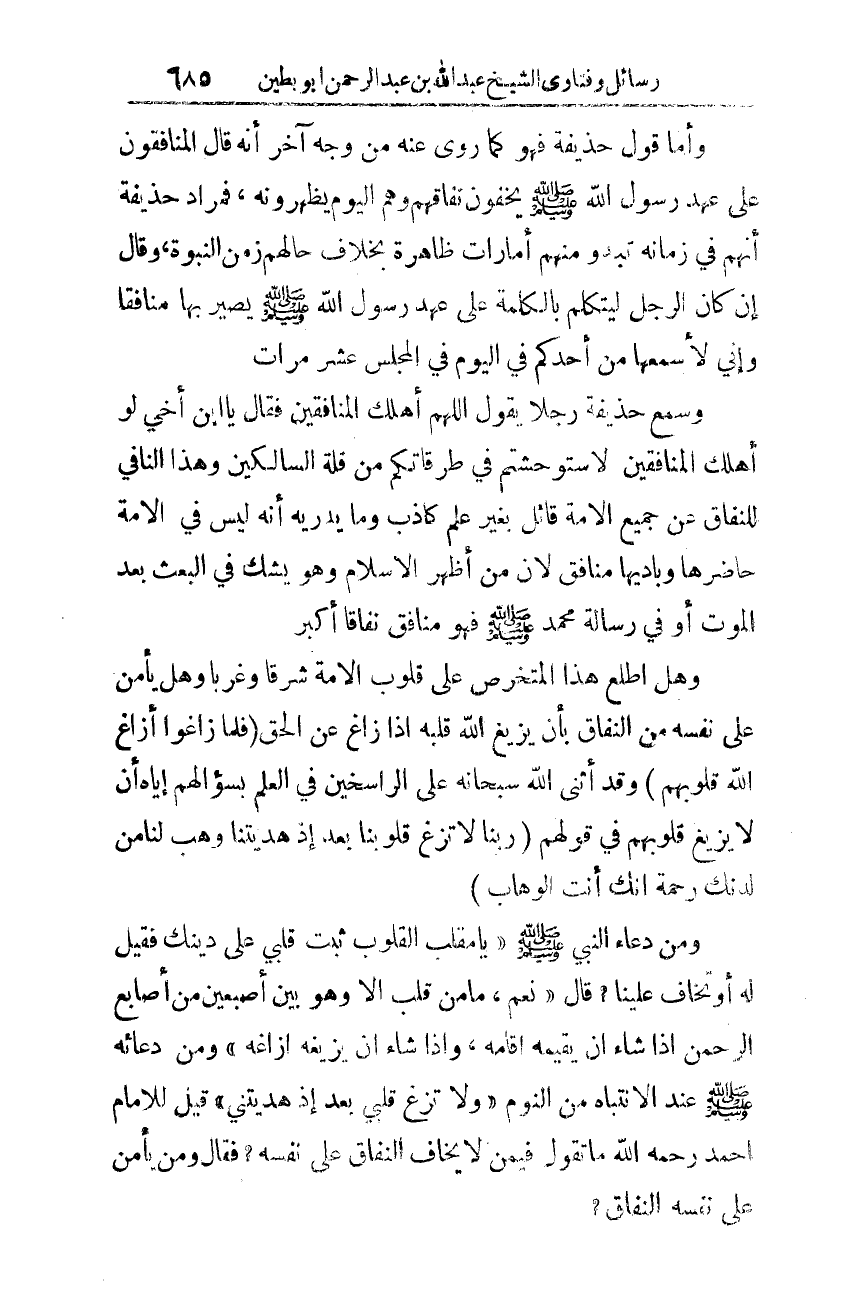 رسائل وفتاوى الشيخ عبدالله بن عبدالرحمن ابو بطين ٦٨٥
وأما قول حذيفة فهو كما روى عنه من وجه آخر أنه قال المنافقون
على عهد رسول الله ﷺ يخفون نفاقهم وهم اليوم يظهرونه ، فمراد حذيفة
أنهم في زمانه تبدو منهم أمارات ظاهرة بخلاف حالهم زمن النبوة، وقال
إن كان الرجل ليتكلم بالكلمة على عهد رسول الله ﷺ يصير بها منافقا
وإني لأسمعها من أحدكم في اليوم في المجلس عشر مرات
وسمع حذيفة رجلا يقول اللهم أهلك المنافقين فقال يا ابن أخي لو
أهلك المنافقين لاستوحشتم في طرقاتكم من قلة السالكين وهذا النافي
للنفاق عن جميع الامة قائل بغير علم كاذب وما يدريه أنه ليس في الامة
حاضرها وباديها منافق لان من أظهر الاسلام وهو يشك في البعث بعد
الموت أو في رسالة محمد ﷺ فهو منافق نفاقا أكبر
وهل اطلع هذا المتخرص على قلوب الامة شرقا وغربا وهل يأمن
على نفسه من النفاق بأن يزيغ الله قلبه اذا زاغ عن الحق (فلما زاغوا أزاغ
الله قلوبهم ) وقد أثنى الله سبحانه على الراسخين في العلم بسؤالهم إياه أن
لا يزيغ قلوبهم في قولهم ( ربنا لا تزغ قلوبنا بعد إذ هديتنا وهب لنا من
لدنك رحمة انك أنت الوهاب )
ومن دعاء النبي ﷺ « يامقلب القلوب ثبت قلبي على دينك فقيل
له أو تخاف علينا ؟ قال « نعم ، مامن قلب الا وهو بين أصبعين من أصابع
الرحمن اذا شاء ان يقيمه اقامه ، واذا شاء ان يزيغه ازاغه » ومن دعائه
ﷺ عند الانتباه من النوم « ولا تزغ قلبي بعد إذ هديتني» قيل للامام
احمد رحمه الله ماتقول فيمن لا يخاف النفاق على نفسه ؟ فقال ومن يأمن
على نفسه النفاق ؟